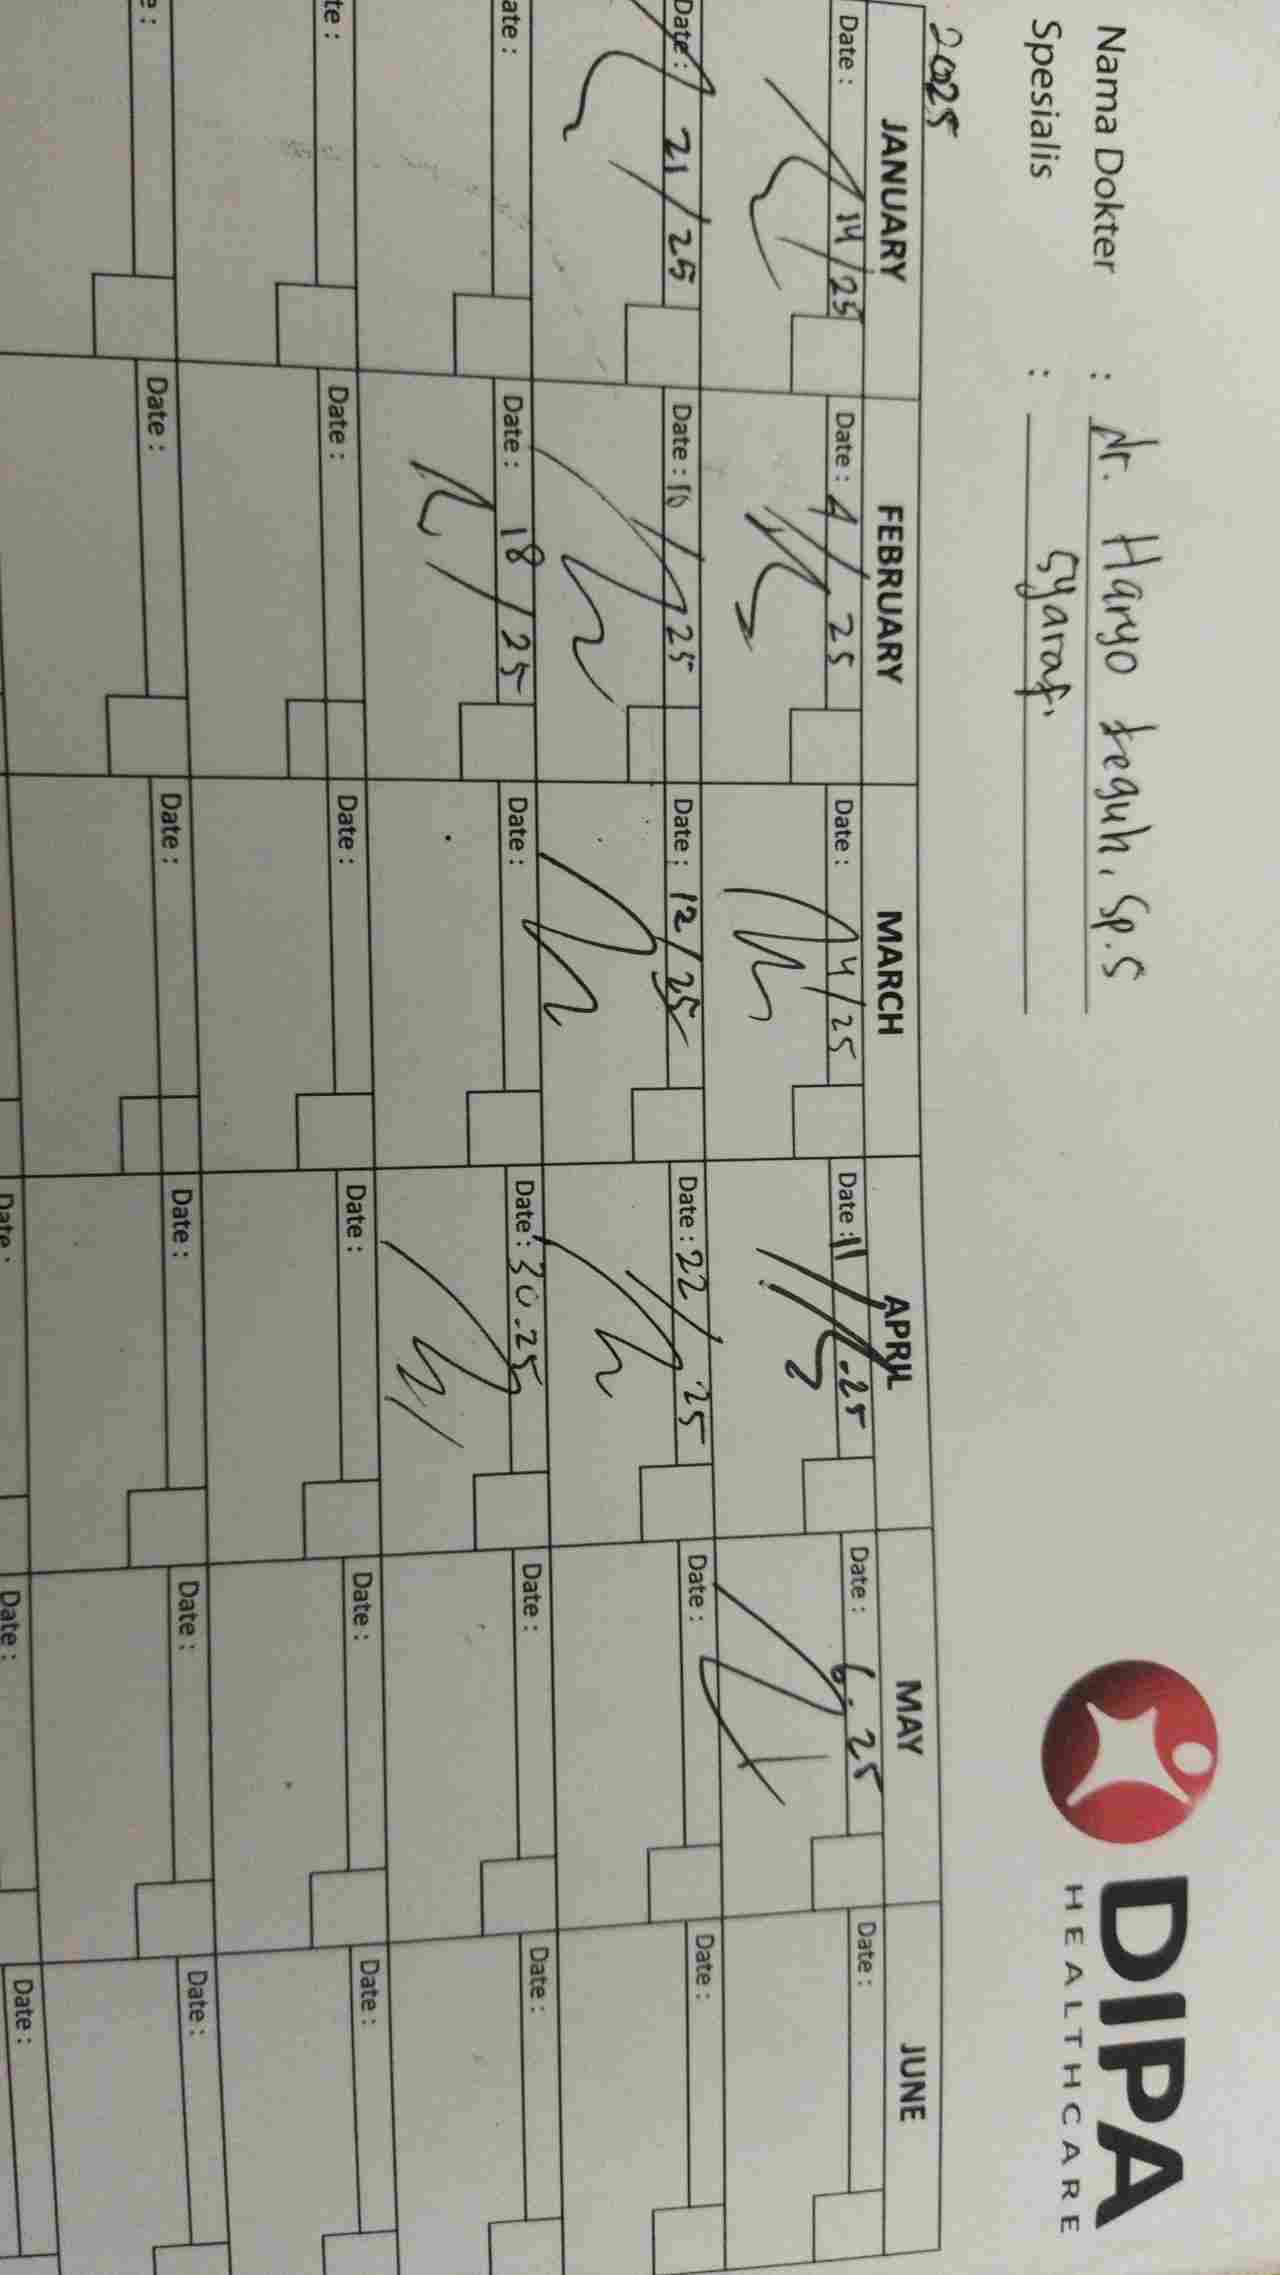 DIPA
HEALTHCARE
Nama Dokter : dr. Haryo teguh, Sp.S
Spesialis : Syaraf
2025
JANUARY FEBRUARY MARCH APRIL MAY JUNE
Date : 14/25 Date : 4/25 Date : 4/25 Date : 11/.25 Date : 6.25 Date :
Date : 21/25 Date : 10/25 Date : 12/25 Date : 22/25 Date : Date :
ate : Date : 18/25 Date : Date : 30.25 Date : Date :
te : Date : Date : Date : Date : Date :
e : Date : Date : Date : Date : Date :
Date : Date : Date :